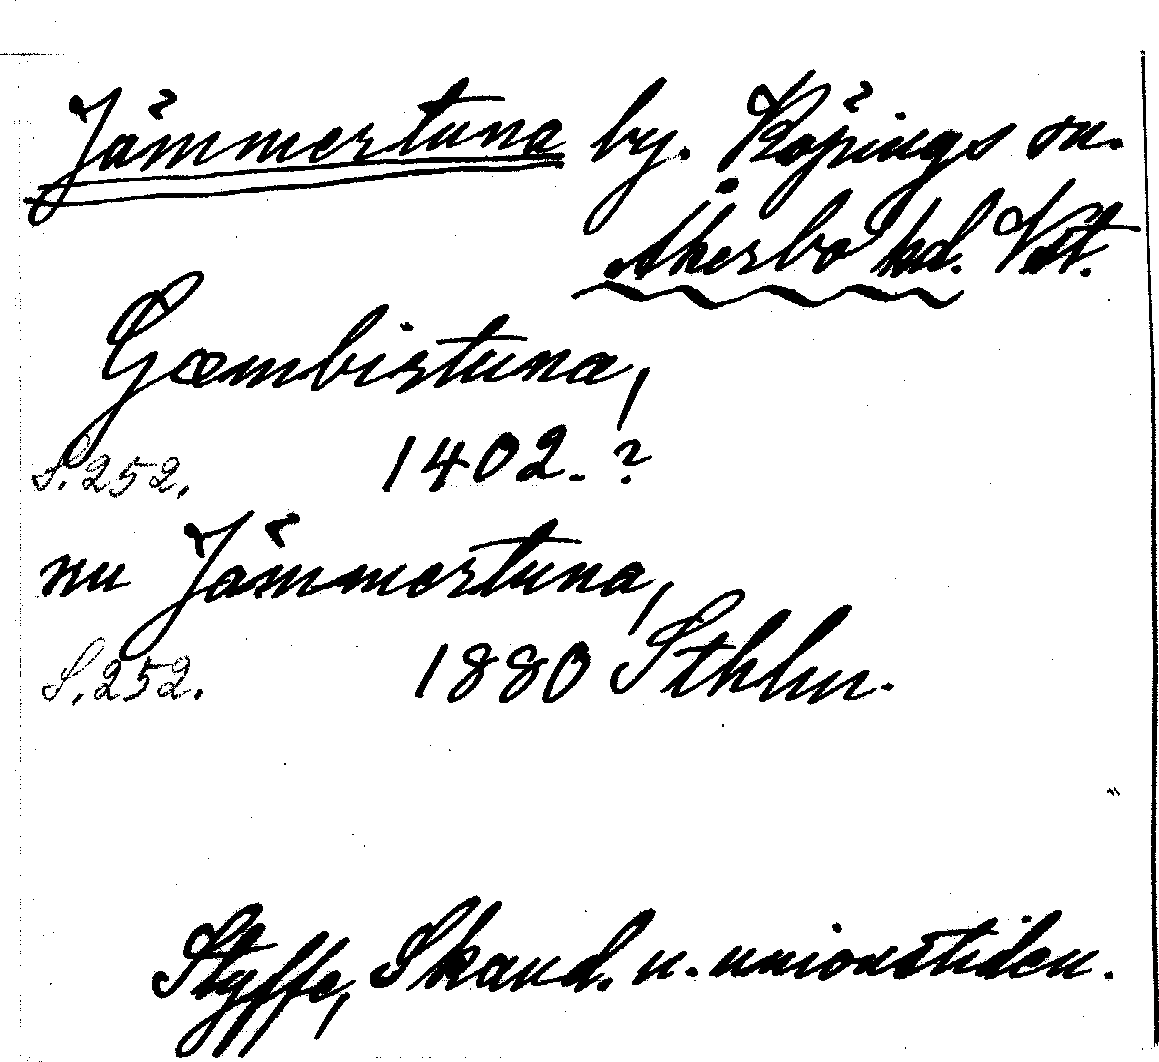 Jämmertuna by. Köpings sn.
Åkerbo hd. Vstl.
Gæmbistuna,
S. 252. 1402. ?
nu Jämmertuna,
S. 252. 1880 Sthlm.
Styffe, Skand. u. unionstiden.